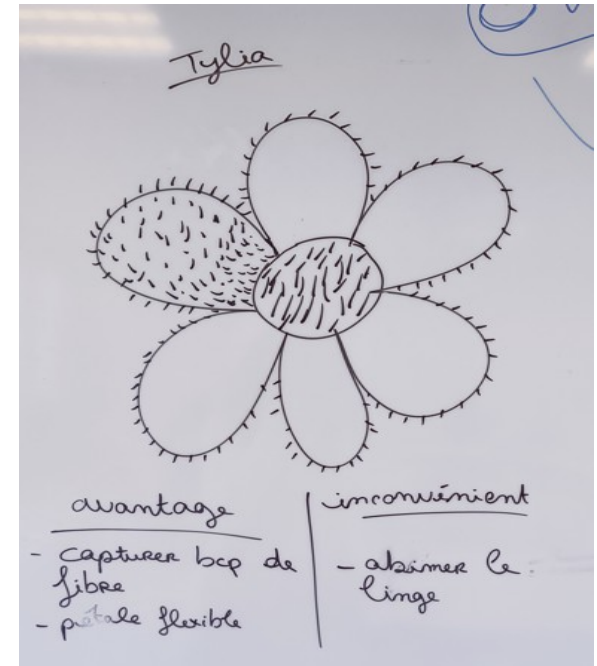 Tylia
avantage
- capturer bcp de
fibre
- pétale flexible
inconvénient
- abimer le
linge